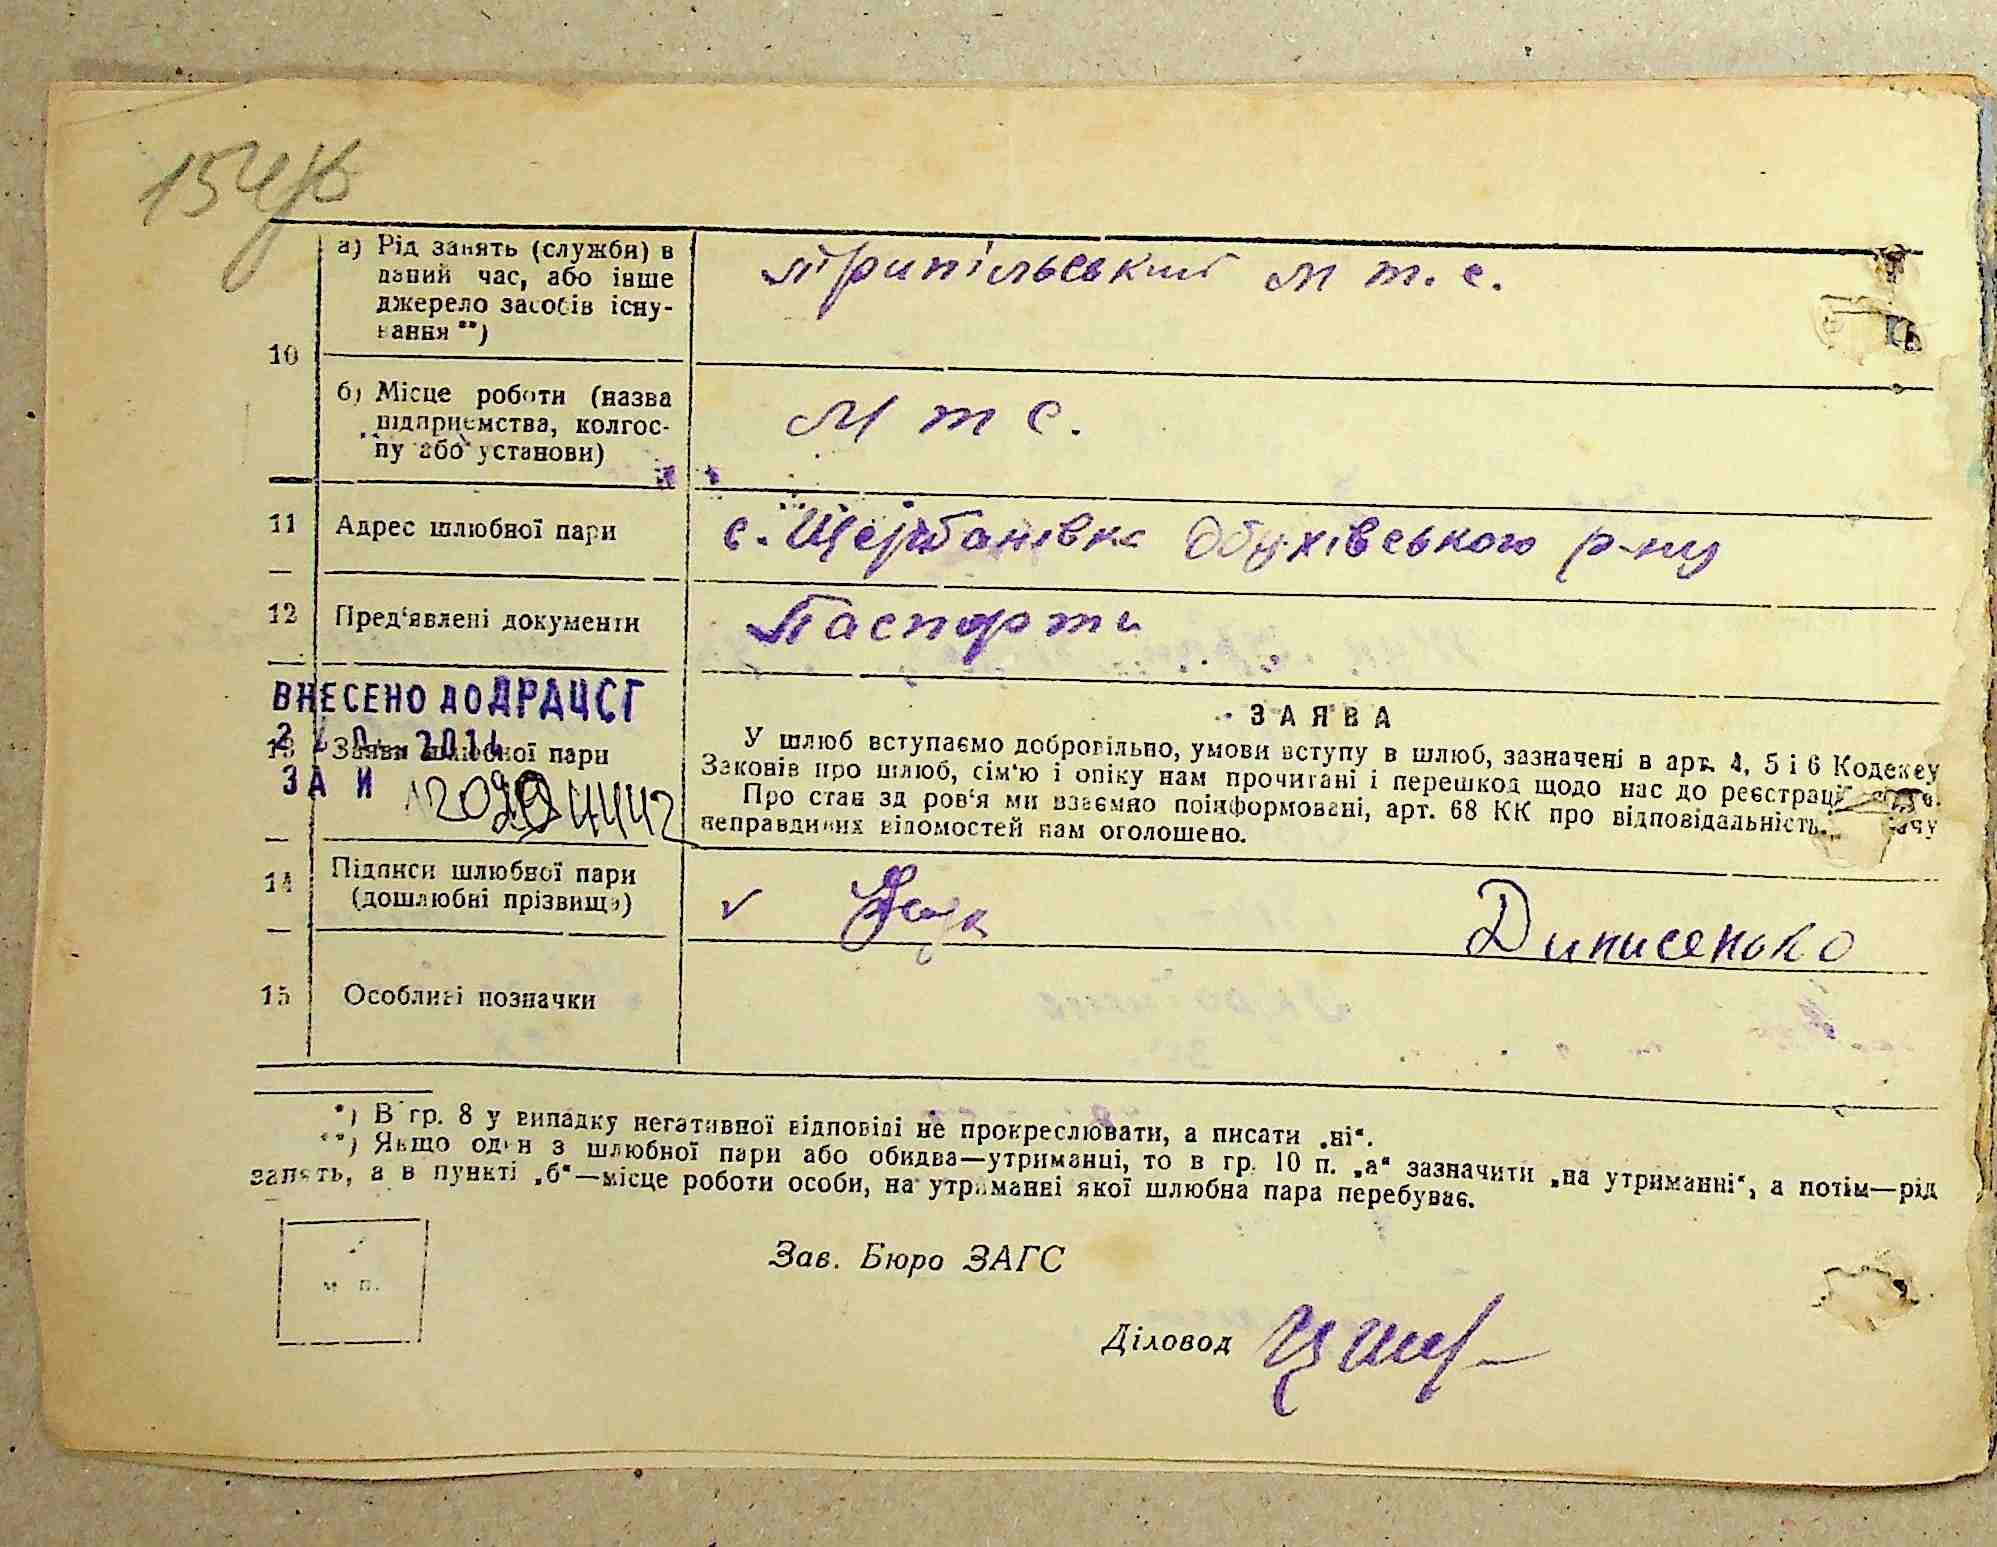 154
а) Рід занять (служби) в
даний час, або інше
джерело засобів існу-
вання **)
Трипільський м т. с.
10
б) Місце роботи (назва
підприємства, колгос-
пу або установи)
М т С.
11 Адрес шлюбної пари
с. Щербанівка Обухівського р-ну
12 Пред'явлені документи
Паспорти
ВНЕСЕНО ДО ДРАЦСГ
2014
ЗА И
13 Заяви шлюбної пари
ЗАЯВА
У шлюб вступаємо добровільно, умови вступу в шлюб, зазначені в арт. 4, 5 і 6 Кодексу
Законів про шлюб, сім'ю і опіку нам прочитані і перешкод щодо нас до реєстрації
Про стан здоров'я ми взаємно поінформовані, арт. 68 КК про відповідальність
неправдивих відомостей нам оголошено.
14 Підписи шлюбної пари
(дошлюбні прізвища)
Динисенько
15 Особливі позначки
*) В гр. 8 у випадку негативної відповіді не прокреслювати, а писати „ні“.
**) Якщо один з шлюбної пари або обидва—утриманці, то в гр. 10 п. „а“ зазначити „на утриманні“, а потім—рід
занять, а в пункті „б“—місце роботи особи, на утриманні якої шлюбна пара перебуває.
м п.
Зав. Бюро ЗАГС
Діловод